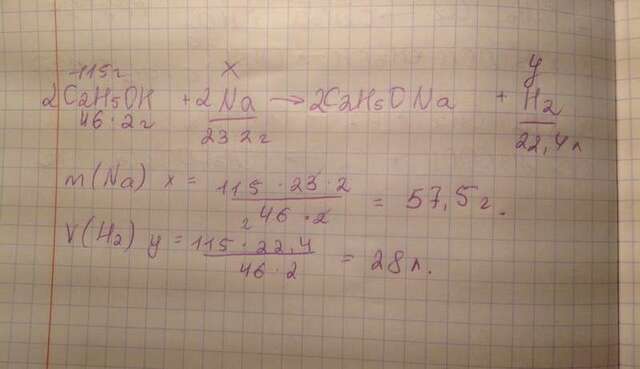 115г x y
2C2H5OH + 2Na → 2C2H5ONa + H2
46·2г 23·2г 22,4л
m(Na) x = 115·23·2 / 2 46·2 = 57,5г.
V(H2) y = 115·22,4 / 46·2 = 28л.